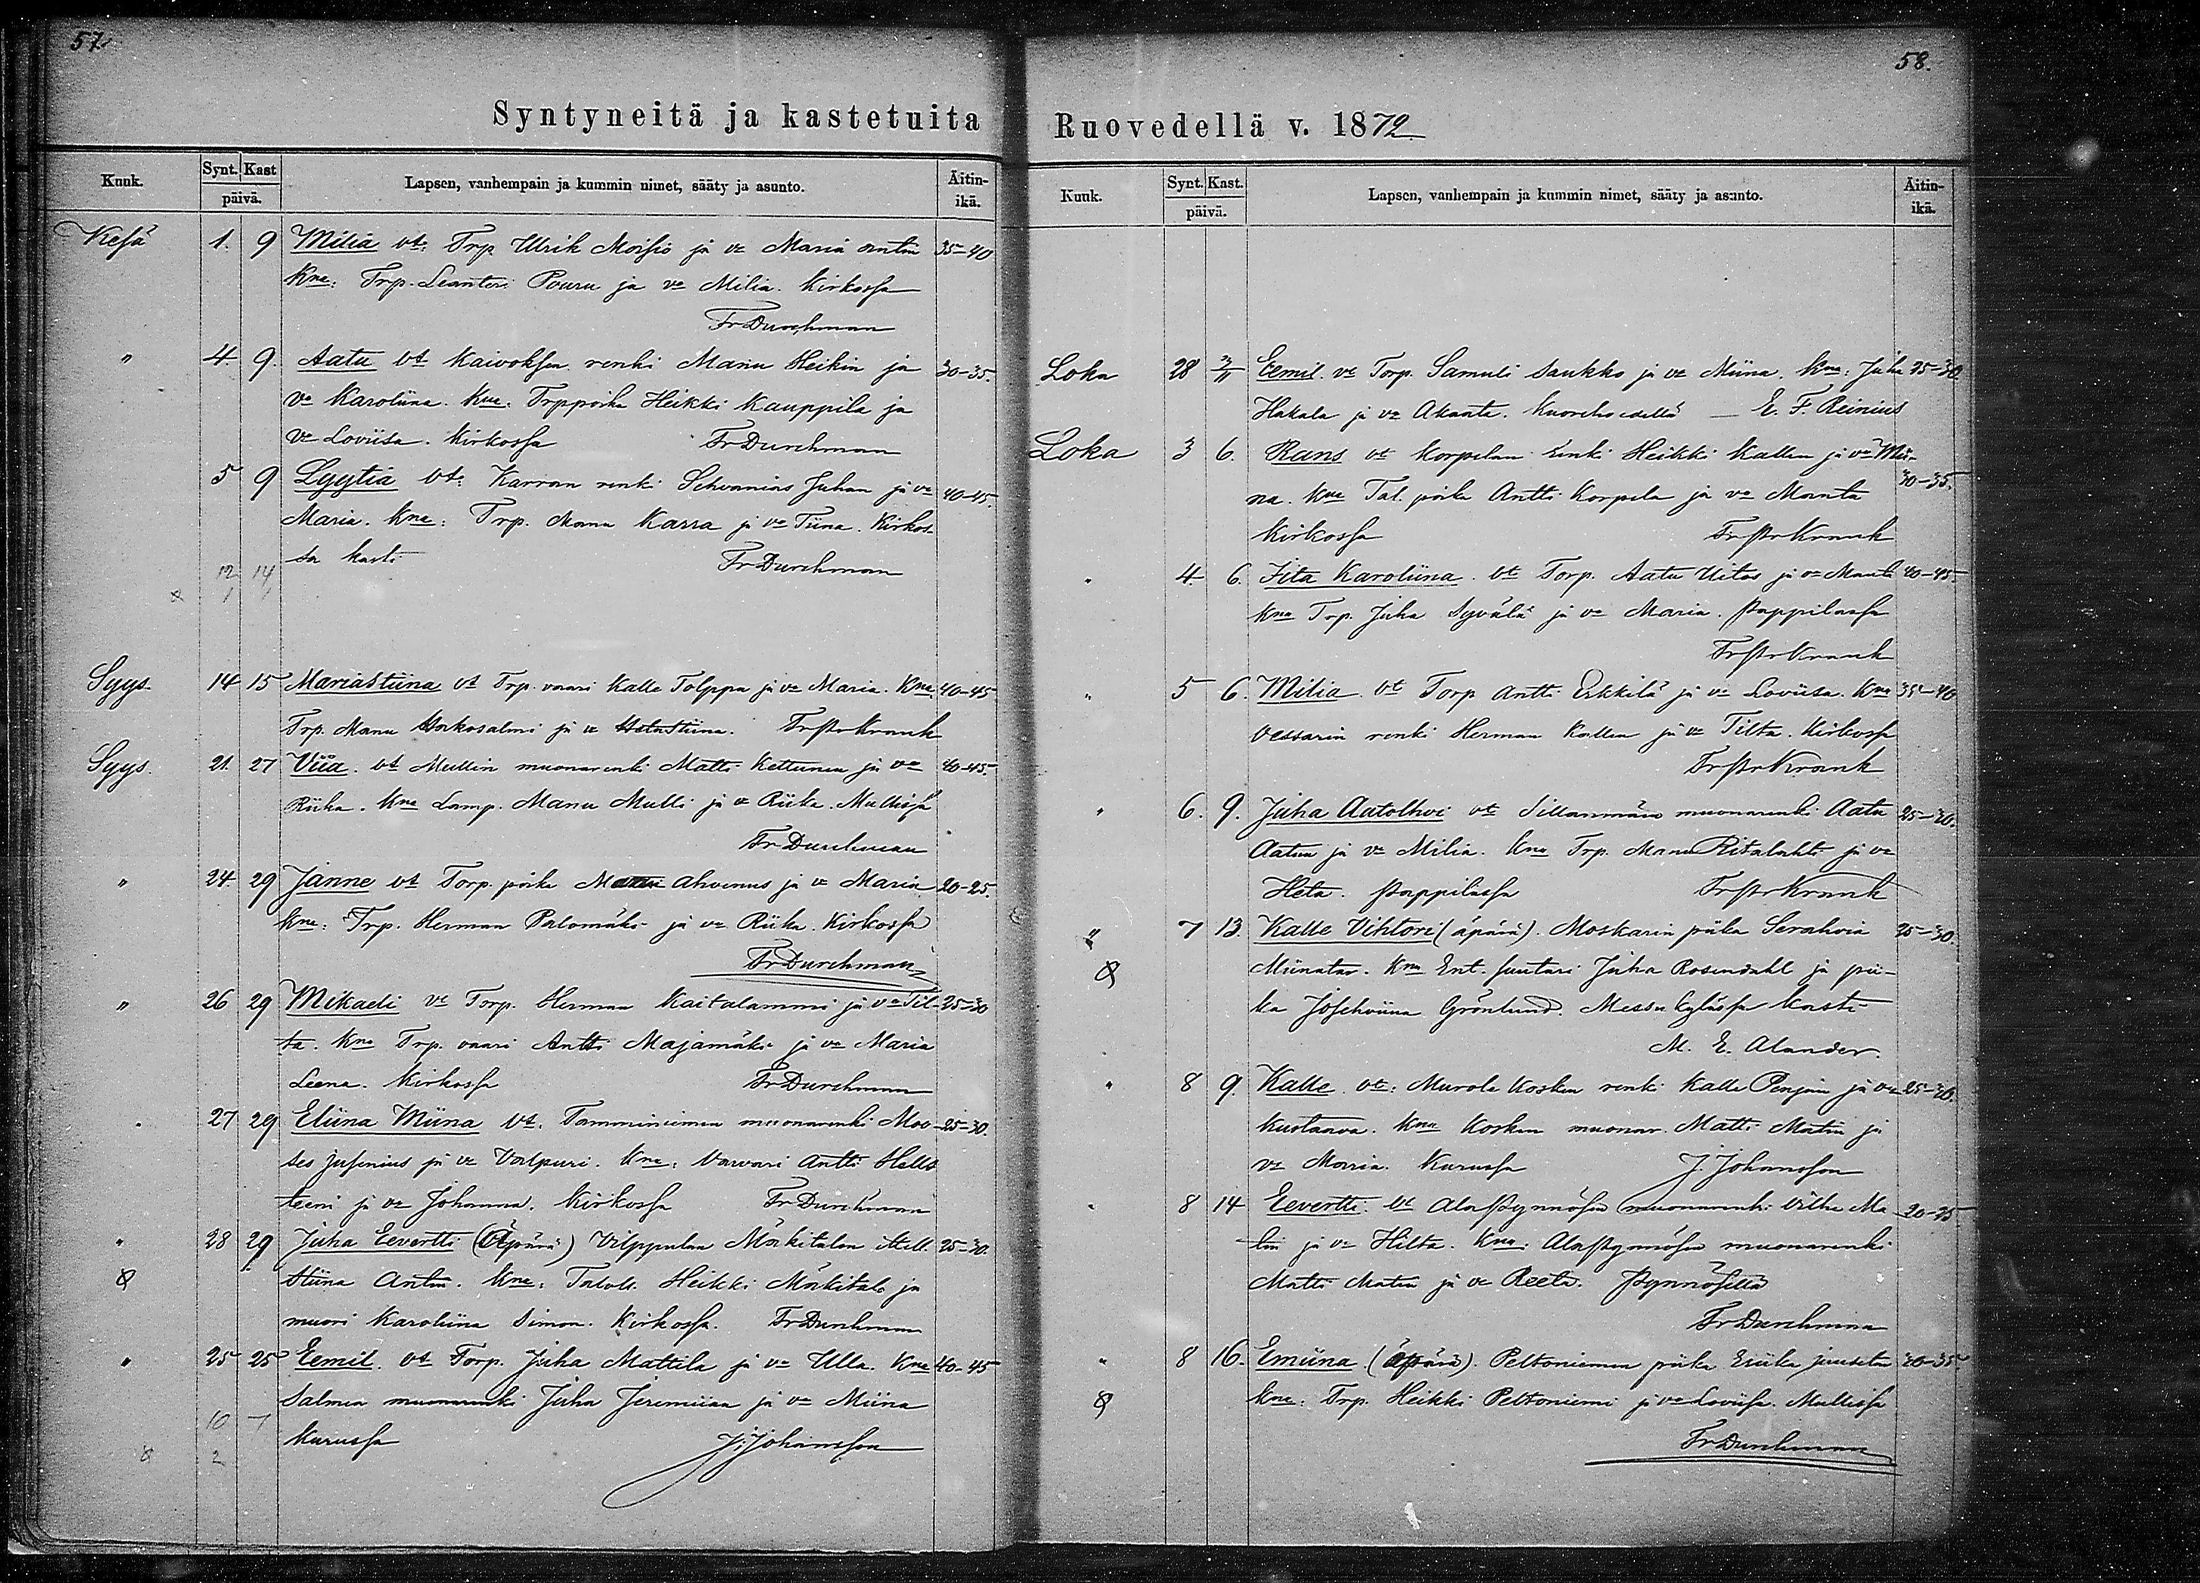 57.
Syntyneitä ja kastetuita
Kuuk. Synt. Kast päivä. Lapsen, vanhempain ja kummin nimet, sääty ja asunto. Äitin-ikä.
Kesä 1. 9 Milia vt: Trp. Ulrik Moisio ja va Maria Antin 35-40
Kna: Trp. Leanteri Pouru ja va Milia. Kirkossa
Fr Durchman
" 4. 9. Aatu vt Kaivoksen renki Manu Heikin ja 30-35.
va Karoliina. Kna: Trppoika Heikki Kauppila ja
va Loviisa. Kirkossa Fr Durchman
5 9 Lyytia vt: Karran renki Juhan ja va 40-45.
Maria. Kna: Trp. Manu Karra ja va Tiina. Kirkos-
sa kasti Fr Durchman
12 14
Syys 14 15 Mariastiina vt Trp. vaari Kalle Tolppa ja va Maria. Kna 40-45
Trp. Manu ja va Fr Pr Krank
Syys. 21. 27 Viia. vt Mullin muonarenki Matti Kettunen ja va 40-45.
Riika. Kna Lamp. Manu Mulli ja va Riika. Mullissa
Fr Durchman
" 24. 29 Janne vt Torp. poika Manu Ahvenus ja va Maria 20-25.
Kna: Trp. Herman Palomäki ja va Riika. Kirkossa
Fr Durchman
" 26 29 Mikaeli vt Torp. Herman Kaitalammi ja va Til- 25-30
ta. Kna Trp. vaari Antti Majamäki ja va Maria
Leena. Kirkossa Fr Durchman
" 27 29 Eliina Miina vt. Tamminiemen muonarenki Moo- 25-30.
ses ja va Valpuri. Kna: Antti Hells
teeni ja va Johanna. Kirkossa Fr Durchman
" 28 29 Juha Eevertti (Äpärä) Vilppulan Mäkitalon 25-30.
Stiina Antin. Kna: Heikki Mäkitalo ja
muori Karoliina Simon. Kirkossa. Fr Durchman
" 25 25 Eemil. vt Torp. Juha Mattila ja va Ulla. Kna 40-45
Salmen muonarenki Juha Jeremiian ja va Miina
Kurussa J. Johansson
10 7
2
58.
Ruovedellä v. 1872
Kuuk. Synt. Kast. päivä. Lapsen, vanhempain ja kummin nimet, sääty ja asunto. Äitin-ikä.
Loka 28 3/11 Eemil. vt Torp. Samuli Saukko ja va Miina. Kna: Juha 25-30
Hakala ja va Akaata. Kuorehvedellä — E. F. Reinius
Loka 3 6. Rans vt Korpelan renki Heikki Kallen ja va Mii-
na. Kna Tal. poika Antti Korpela ja va Manta 30-35.
Kirkossa Fr Pr Krank
" 4. 6. Iita Karoliina. vt Torp. Aatu Uitos ja va Manta 40-45.
Kna Trp. Juha Syvälä ja va Maria. Pappilassa
Fr Pr Krank
" 5 6. Milia. vt Torp Antti Erkkilä ja va Loviisa. Kna 35-40
Vessarin renki Herman Kallen ja va Tilta. Kirkossa
Fr Pr Krank
" 6. 9. Juha Aatolhvi vt Sillanmäen muonarenki Aatu 25-30.
Aatun ja va Milia. Kna Trp. Manu Ritalahti ja va
Heta. Pappilassa Fr Pr Krank
" 7 13. Kalle Vihtori (äpärä). Moskarin piika Serahvia 25-30.
Miinatar. Kna Ent. suutari Juha Rosendahl ja pii-
ka Josehviina Grönlund. Messukylässä kasti
M. E. Alander.
" 8 9. Kalle. vt: Murole Kosken renki Kalle Penjin ja va 25-30.
Kustaava. Kna Kosken muonar. Matti Matin ja
va Maria. Kurussa J. Johansson
" 8 14 Eevertti. vt AlaPynnösen muonarenki Vilhe Ma- 20-25
tin ja va Hilta. Kna: AlaPynnösen muonarenki
Matti Matin ja va Reeta. Pynnösellä
Fr Durchman
" 8 16. Emiina (äpärä). Peltoniemen piika Eriika 30-35.
Kna: Trp. Heikki Peltoniemi ja va Loviisa. Mullissa
Fr Durchman